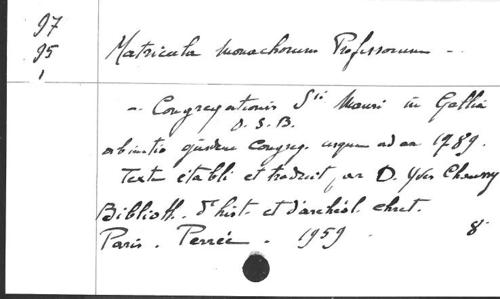 97
95
1
Matricula Monachorum Professorum -
- Congregationis Sti Mauri in Gallia
O. S. B.
ab initio ejusdem Congreg. usque ad an 1789.
Texte établi et traduit par D. Yves Chaussy
Biblioth. d'hist. et d'archéol. chrét.
Paris. Perrée. 1959. 8°